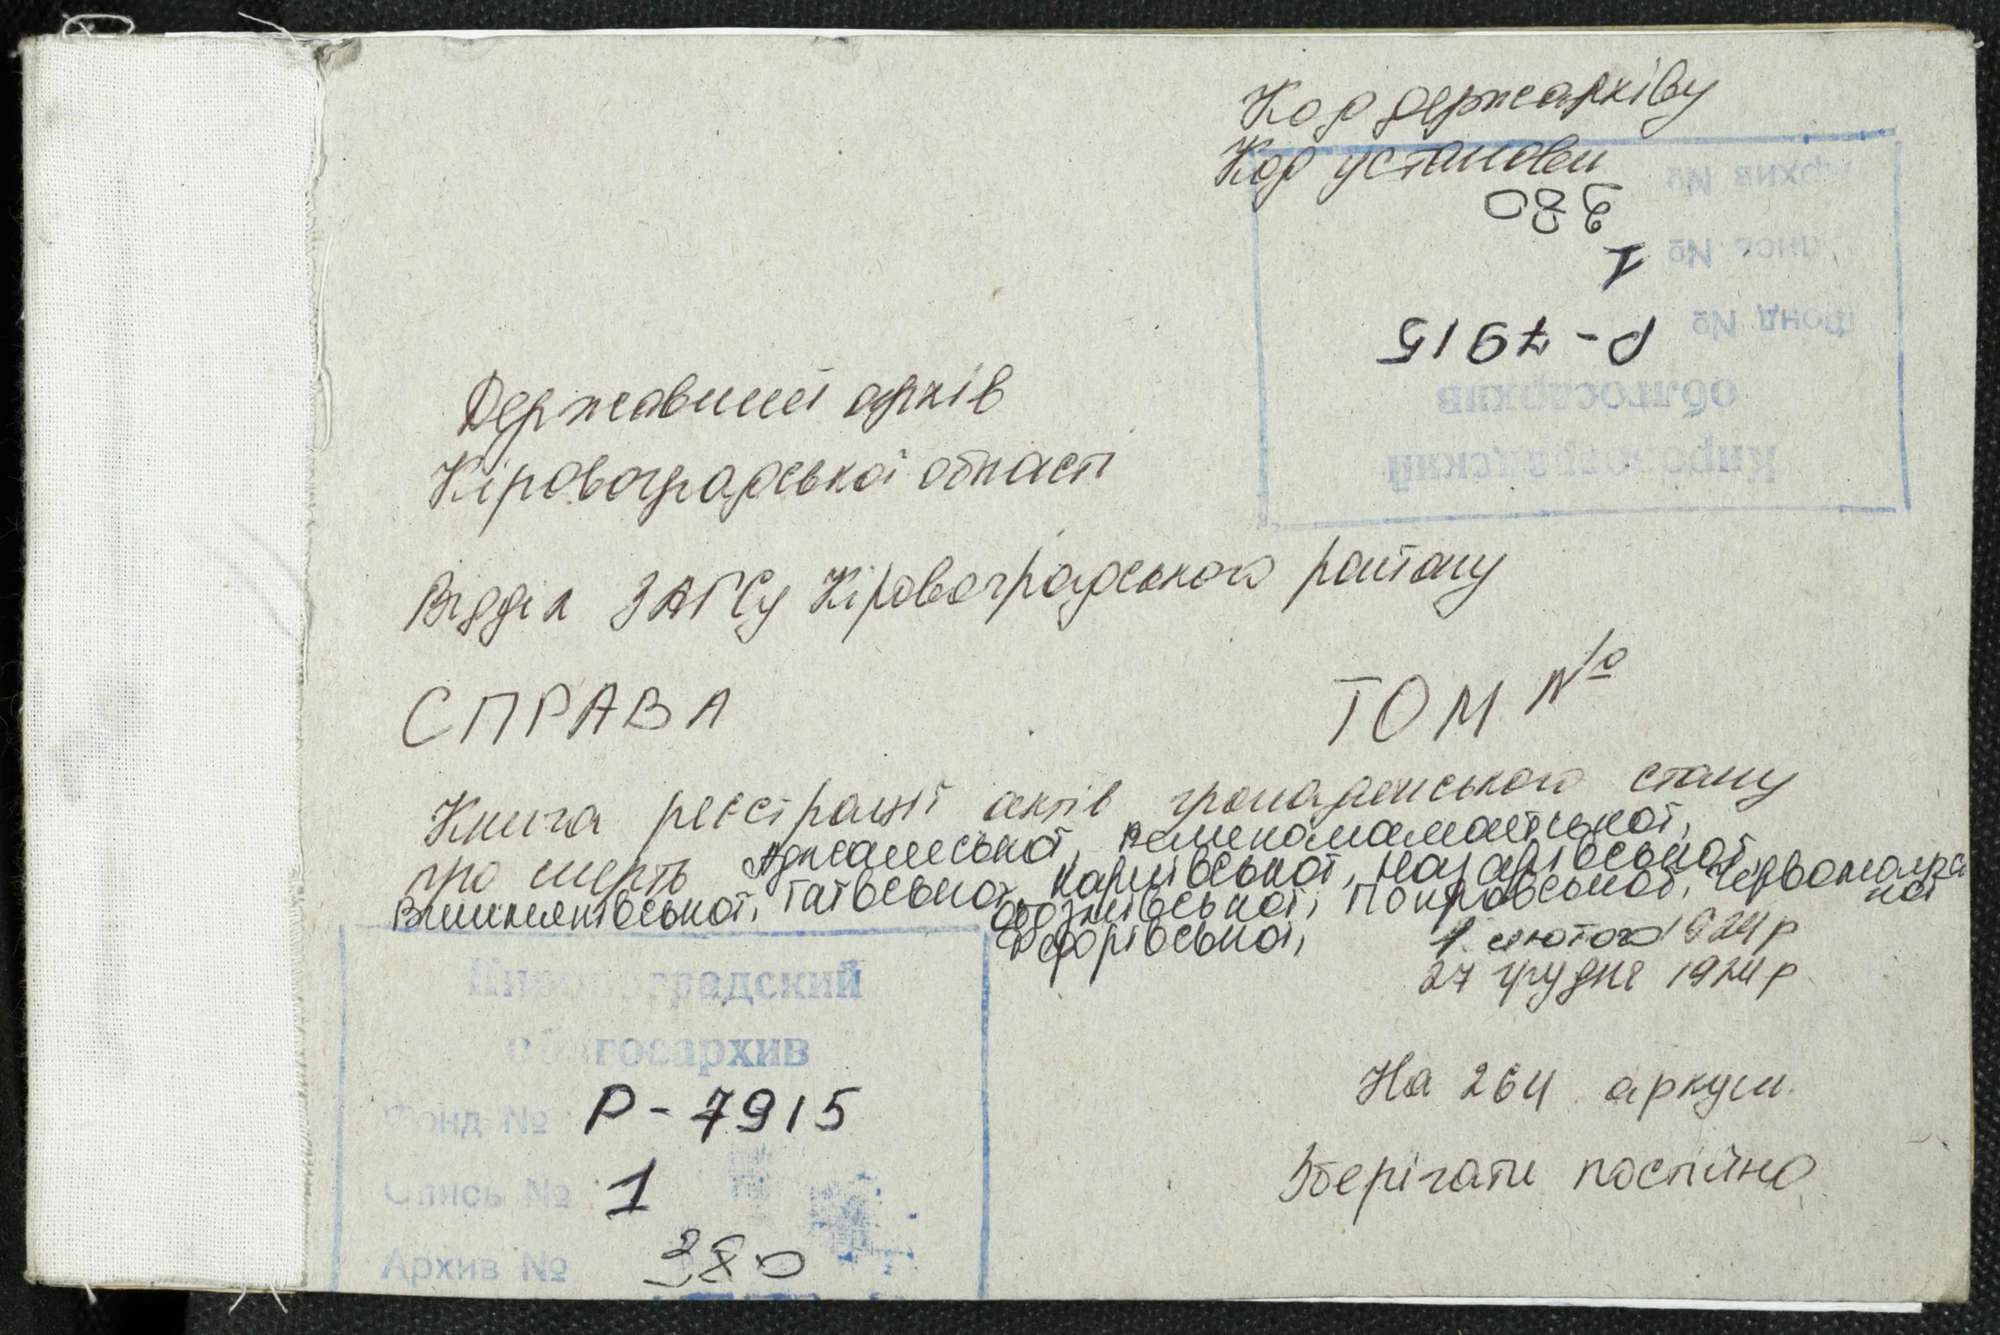 Код держархіву
Код установи
Кировоградский
облгосархив
Фонд № Р-7915
Опись № 1
Архив № 380
Державний архів
Кіровоградської області
Відділ ЗАГСу Кіровоградського району
СПРАВА ТОМ №
Книга реєстрації актів громадянського стану
про смерть Аджамської, Великомамайської,
Вишняківської, Гаївської, Карлівської, Назарівської,
Обознівської, Покровської, Червоноярської
Федорівської,
1 лютого 1924 р
27 грудня 1924 р
На 264 аркуш.
Зберігати постійно
Кировоградский
облгосархив
Фонд № Р-7915
Опись № 1
Архив № 380